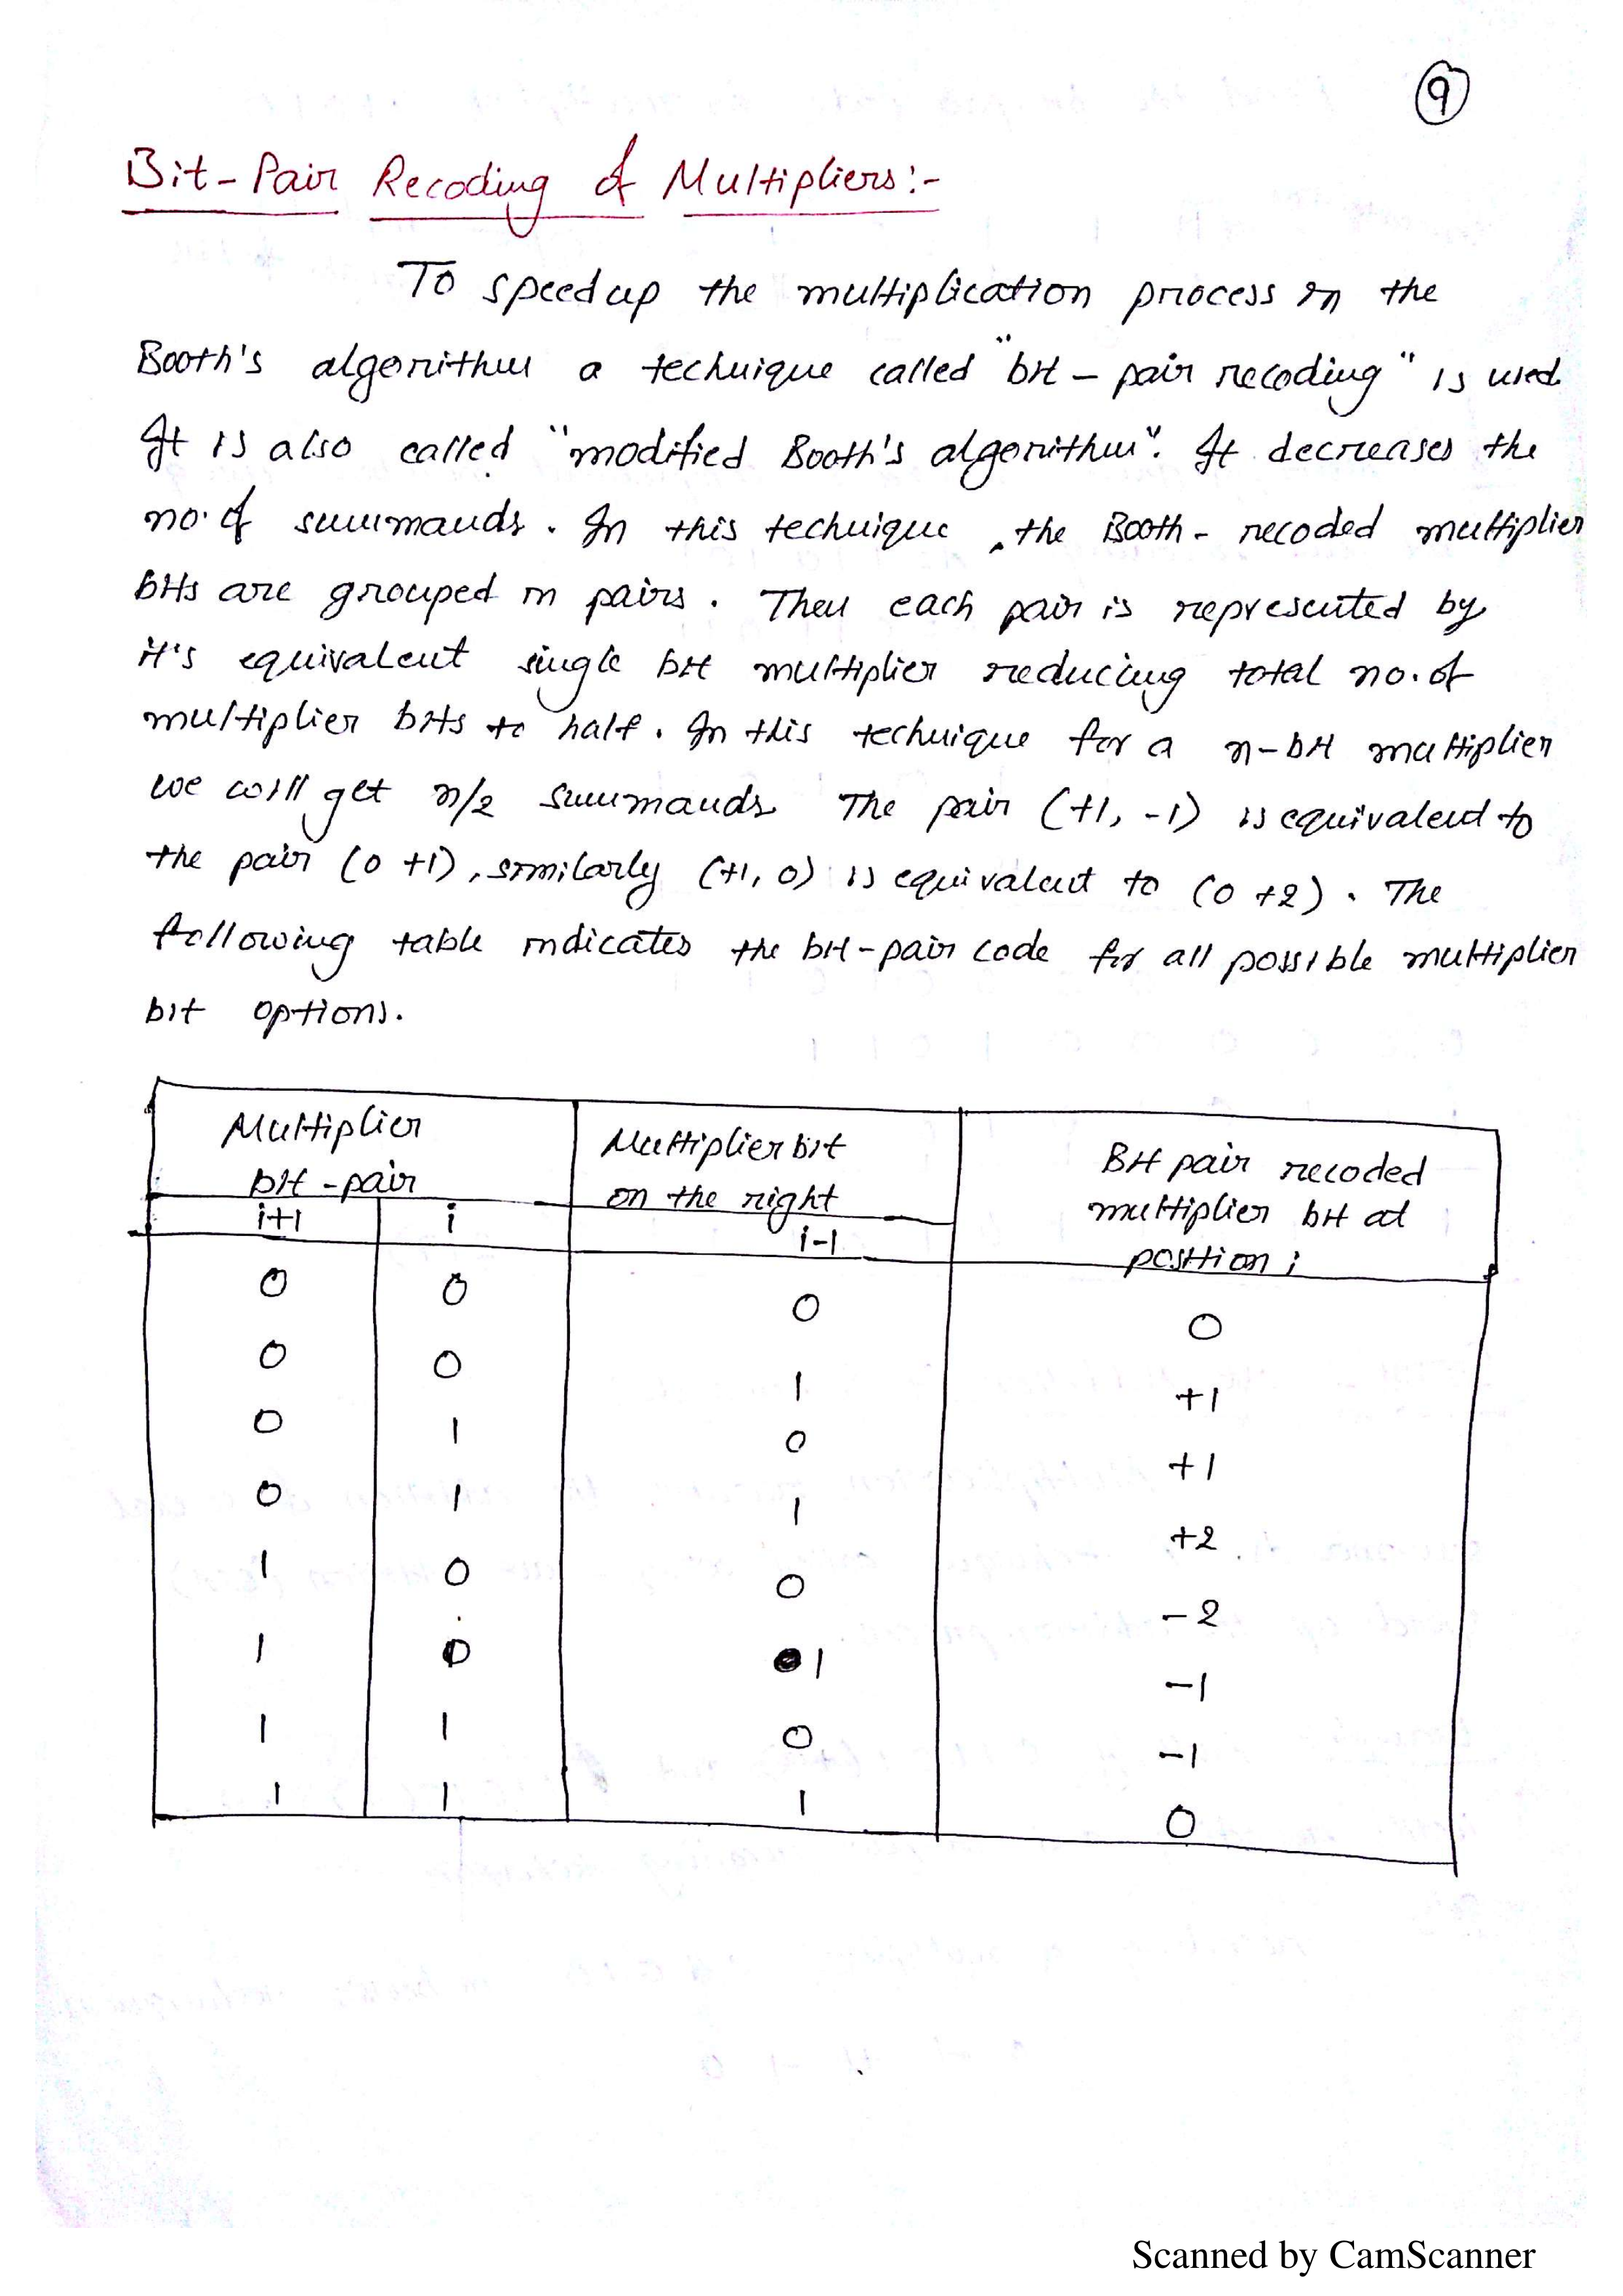 9
Bit-Pair Recoding of Multipliers:-
To speedup the multiplication process in the
Booth's algorithm a technique called "bit-pair recoding" is used.
It is also called "modified Booth's algorithm". It decreases the
no. of summands. In this technique, the Booth-recoded multiplier
bits are grouped in pairs. Then each pair is represented by
it's equivalent single bit multiplier reducing total no. of
multiplier bits to half. In this technique for a n-bit multiplier
we will get n/2 summands. The pair (+1, -1) is equivalent to
the pair (0 +1), similarly (+1, 0) is equivalent to (0 +2). The
following table indicates the bit-pair code for all possible multiplier
bit options.
Multiplier bit-pair | Multiplier bit on the right | Bit pair recoded multiplier bit at position i
i+1 | i | i-1
0 0 0 0
0 0 1 +1
0 1 0 +1
0 1 1 +2
1 0 0 -2
1 0 1 -1
1 1 0 -1
1 1 1 0
Scanned by CamScanner